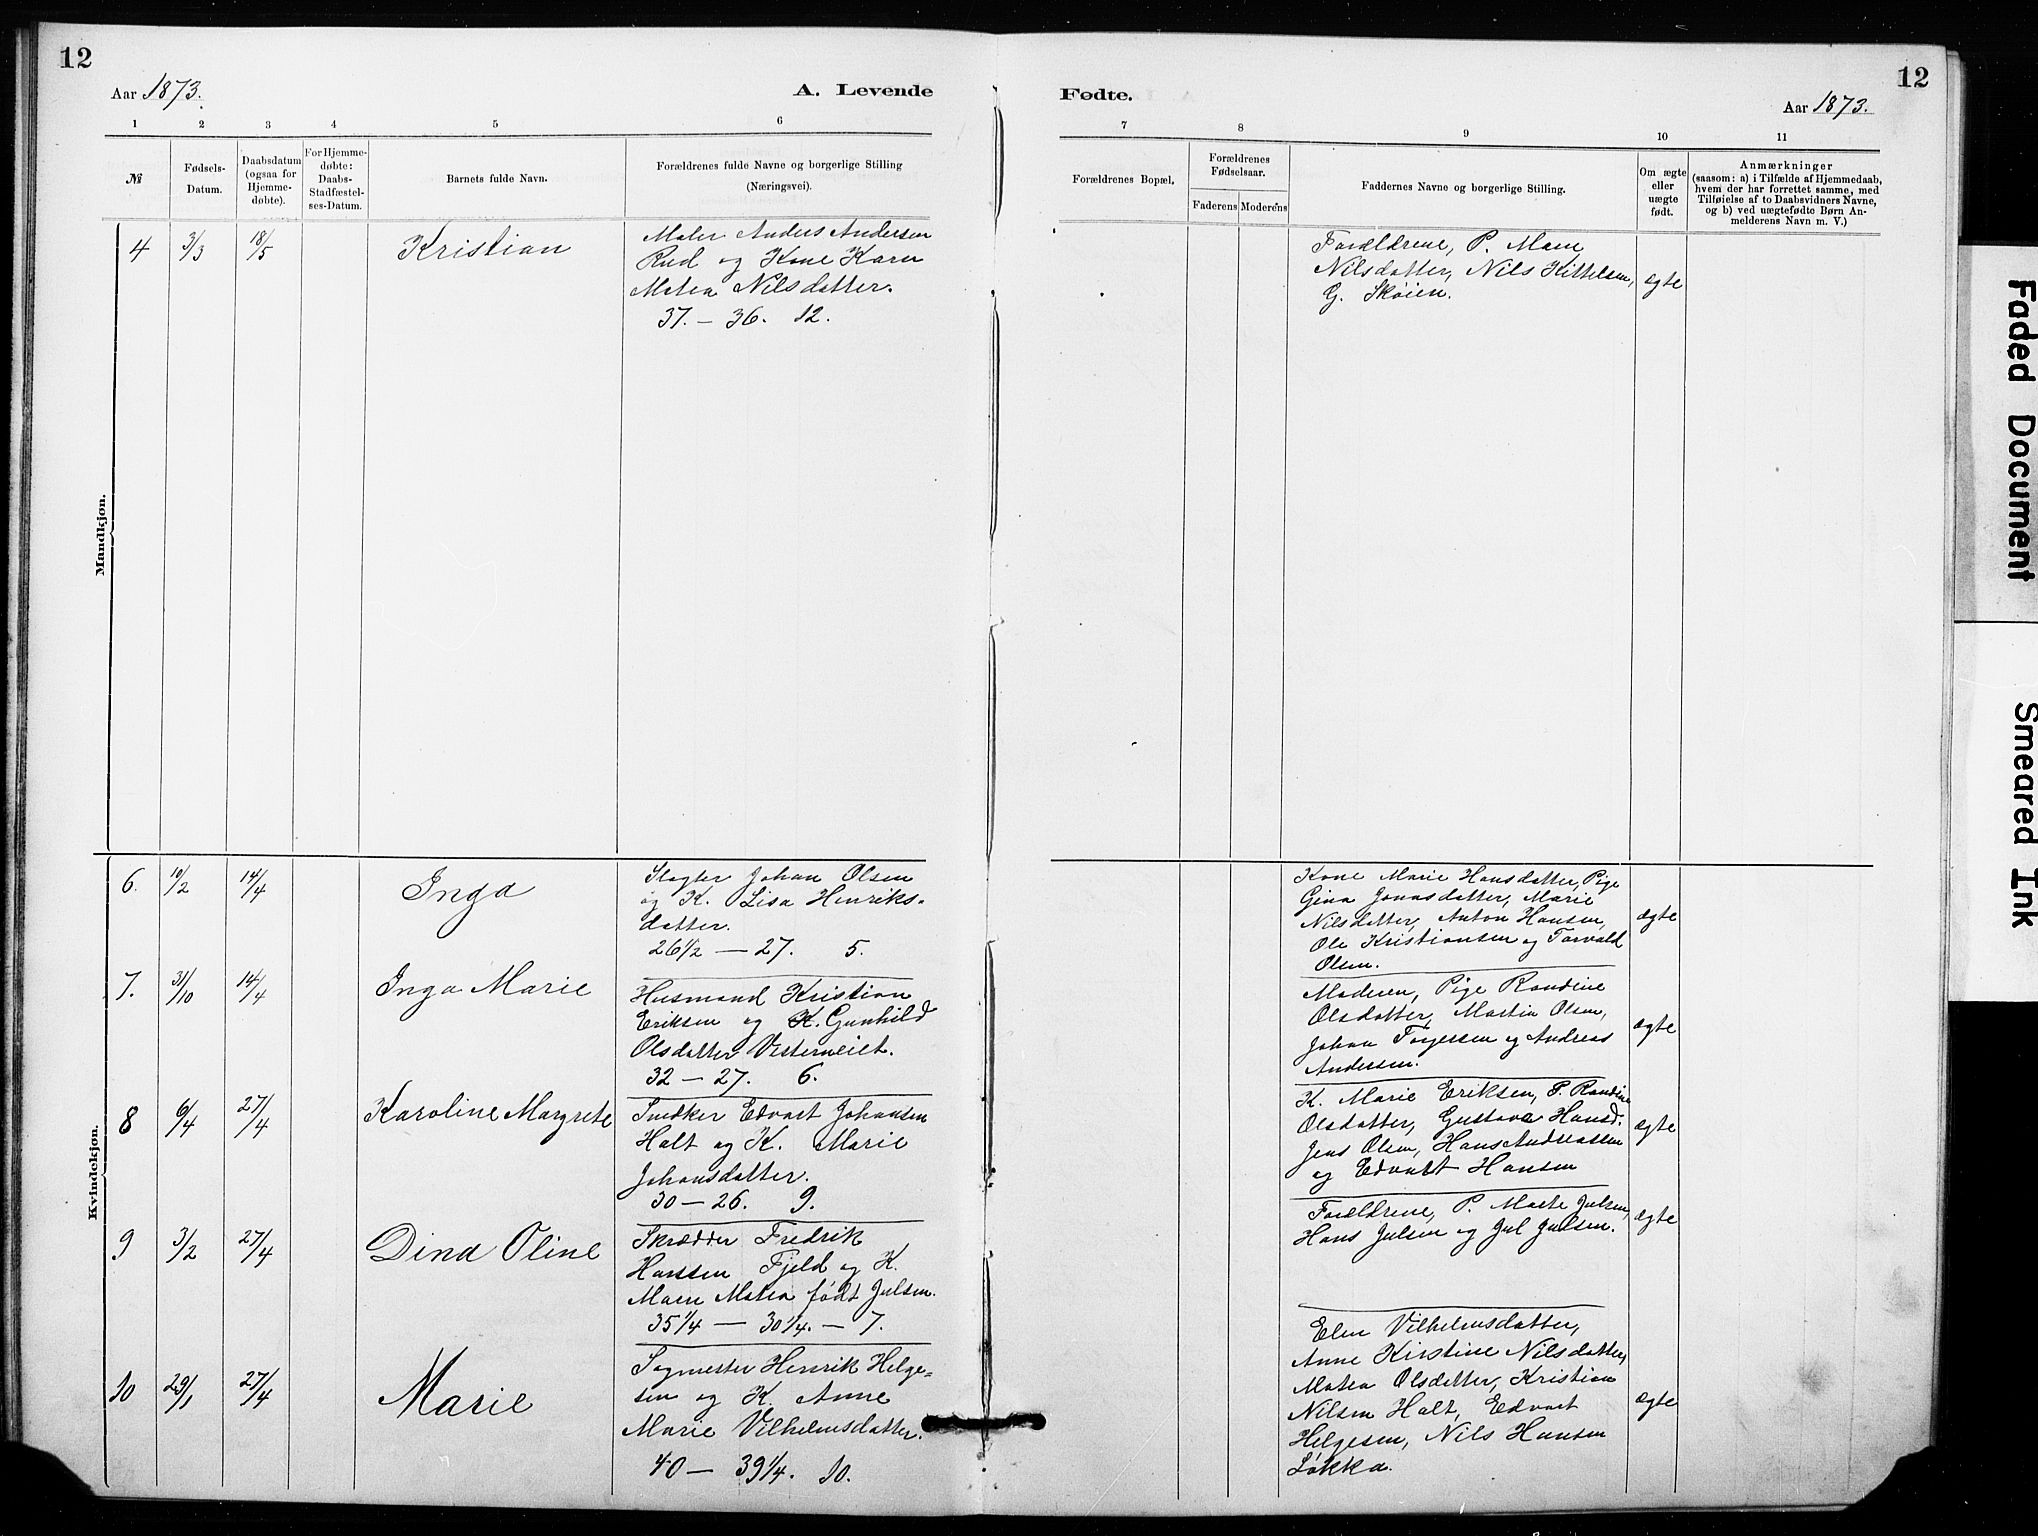 12
Aar 1873.
A. Levende
1 2 3 4 5 6
№
Fødsels-
Datum.
Daabsdatum
(ogsaa for
Hjemme-
døbte).
For Hjemme-
døbte:
Daabs-
Stadfæstel-
ses-Datum.
Barnets fulde Navn.
Forældrenes fulde Navne og borgerlige Stilling
(Næringsvei).
Mandkjøn.
4 3/3 18/5 Kristian
Maler Anders Andersen
Rud og Kone Karen
Matea Nilsdatter.
37. — 36. 12.
Kvindekjøn.
6. 10/2 14/4 Inga
Slagter Johan Olsen
og K. Lisa Henriks-
datter.
26 1/2 — 27. 5.
7. 31/10 14/4 Inga Marie
Husmand Kristian
Eriksen og K. Gunhild
Olsdatter Vesterneiet.
32 — 27. 6.
8 6/4 27/4 Karoline Margrete
Snedker Edvart Johansen
Holt og K. Marie
Johansdatter.
30 — 26. 9.
9 3/2 27/4 Dina Oline
Skrædder Fredrik
Hansen Fjeld og K.
Maren Matea født Julsen.
35 1/4 — 30 1/4. — 7.
10 29/1 27/4 Marie
Sagmester Henrik Helge-
sen og K. Anne
Marie Vilhelmsdatter.
40 — 39 1/4. 10.
12
Fødte.
Aar 1873.
7 8 9 10 11
Forældrenes Bopæl.
Forældrenes
Fødselsaar.
Faderens Moderens
Faddernes Navne og borgerlige Stilling.
Om ægte
eller
uægte
født.
Anmærkninger
(saasom: a) i Tilfælde af Hjemmedaab,
hvem der har forrettet samme, med
Tilføielse af to Daabsvidners Navne,
og b) ved uægtefødte Børn An-
melderens Navn m. V.)
Forældrene, P. Maren
Nilsdatter, Nils Kittelsen, ægte
G. Skøien.
Kone Marie Hansdatter, Pige
Gina Jonasdatter, Marie
Nilsdatter, Anton Hansen, ægte
Ole Kristiansen og Torvald
Olsen.
Moderen, Pige Randine
Olsdatter, Martin Olsen, ægte
Johan Torgersen og Andreas
Andersen.
K. Marie Eriksen, P. Randine
Olsdatter, Gustava Hansd. ægte
Jens Olsen, Hans Andreassen
og Edvart Hansen
Forældrene, P. Marte Julsen, ægte
Hans Julsen og Jul Julsen.
Elen Vilhelmsdatter,
Anne Kirstine Nilsdatter,
Matea Olsdatter, Kristian ægte
Nilsen Holt, Edvart
Helgesen, Nils Hansen
Løkka.
Faded Document
Smeared Ink